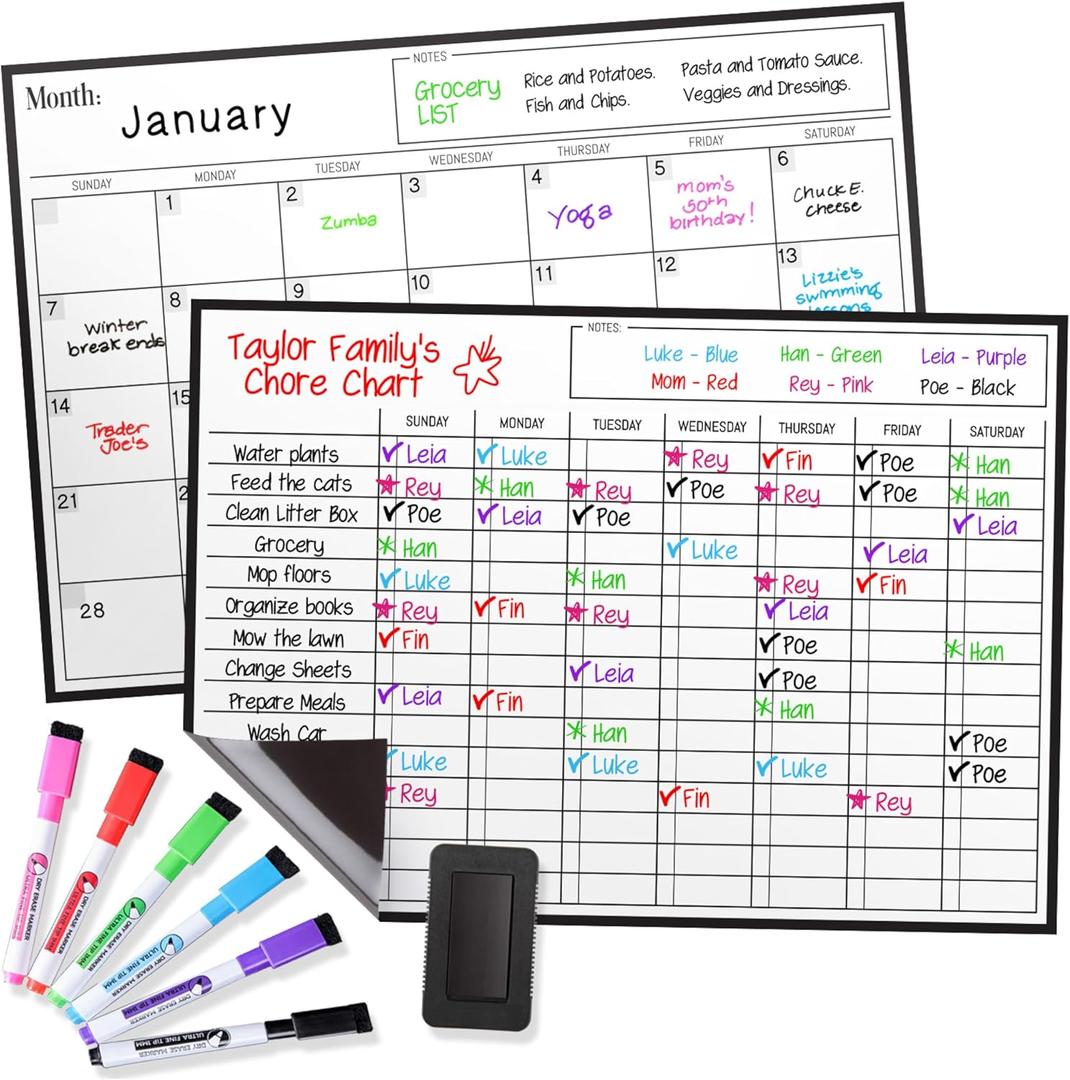 Month:
January
NOTES
Grocery
LIST
Rice and Potatoes.
Fish and Chips.
Pasta and Tomato Sauce.
Veggies and Dressings.
SUNDAY MONDAY TUESDAY WEDNESDAY THURSDAY FRIDAY SATURDAY
1 2 3 4 5 6
Zumba
Yoga
mom's
50th
birthday!
Chuck E.
cheese
7 8 9 10 11 12 13
Winter
break ends
Lizzie's
swimming
lessons
14 15
Trader
Joe's
21 2
28
Taylor Family's
Chore Chart
NOTES:
Luke - Blue Han - Green Leia - Purple
Mom - Red Rey - Pink Poe - Black
SUNDAY MONDAY TUESDAY WEDNESDAY THURSDAY FRIDAY SATURDAY
Water plants Leia Luke Rey Fin Poe Han
Feed the cats Rey Han Rey Poe Rey Poe Han
Clean Litter Box Poe Leia Poe Leia
Grocery Han Luke Leia
Mop floors Luke Han Rey Fin
Organize books Rey Fin Rey Leia
Mow the lawn Fin Poe Han
Change Sheets Leia Poe
Prepare Meals Leia Fin Han
Wash Car Han Poe
Luke Luke Luke Poe
Rey Fin Rey
DRY ERASE MARKER
ULTRA FINE TIP 1MM
DRY ERASE MARKER
ULTRA FINE TIP 1MM
DRY ERASE MARKER
ULTRA FINE TIP 1MM
DRY ERASE MARKER
ULTRA FINE TIP 1MM
DRY ERASE MARKER
ULTRA FINE TIP 1MM
DRY ERASE MARKER
ULTRA FINE TIP 1MM